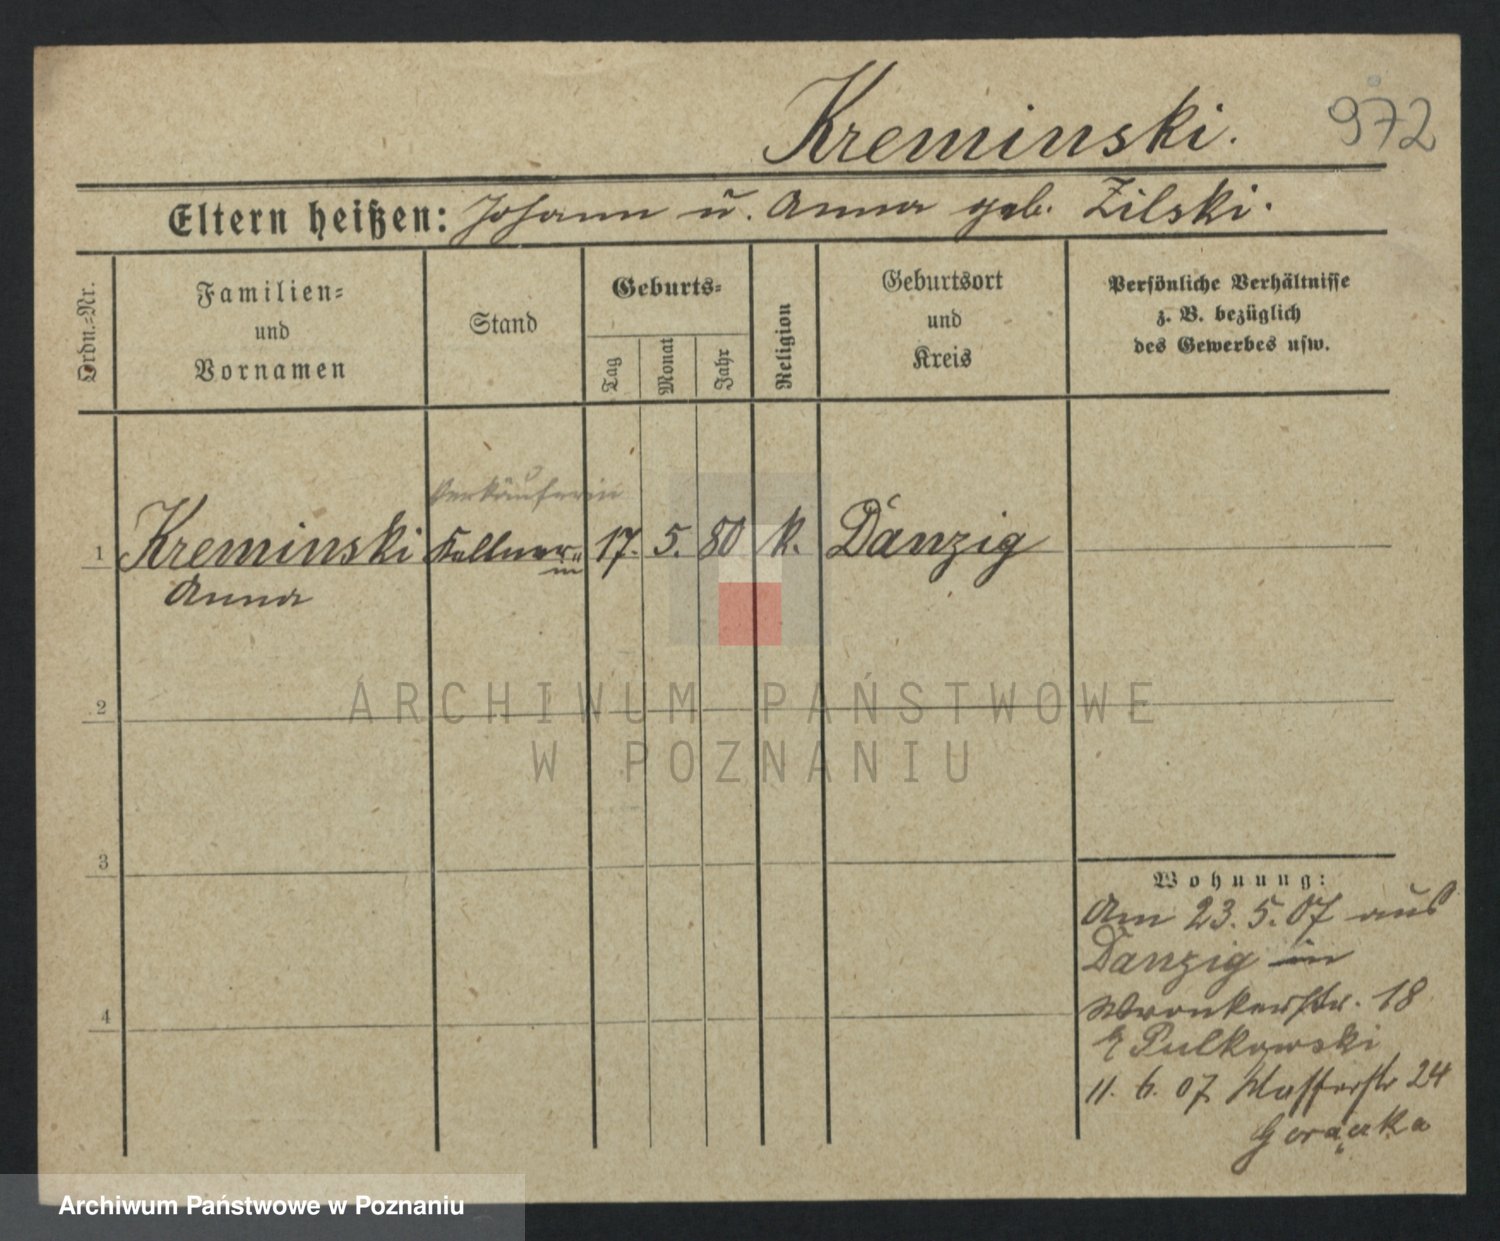 Kreminski.
972
Eltern heißen: Johann u. Anna geb. Zilski.
Ordn.=Nr.
Familien=
und
Vornamen
Stand
Geburts=
Tag
Monat
Jahr
Religion
Geburtsort
und
Kreis
Persönliche Verhältnisse
z. B. bezüglich
des Gewerbes usw.
Verkäuferin
1 Kreminski Kellner= 17. 5. 80 k. Danzig
in
Anna
2
3
4
Wohnung:
Am 23. 5. 07 aus
Danzig in
Wronkerstr. 18
Pulkowski
11. 6. 07 Wasserstr 24
ARCHIWUM PAŃSTWOWE
W POZNANIU
Archiwum Państwowe w Poznaniu